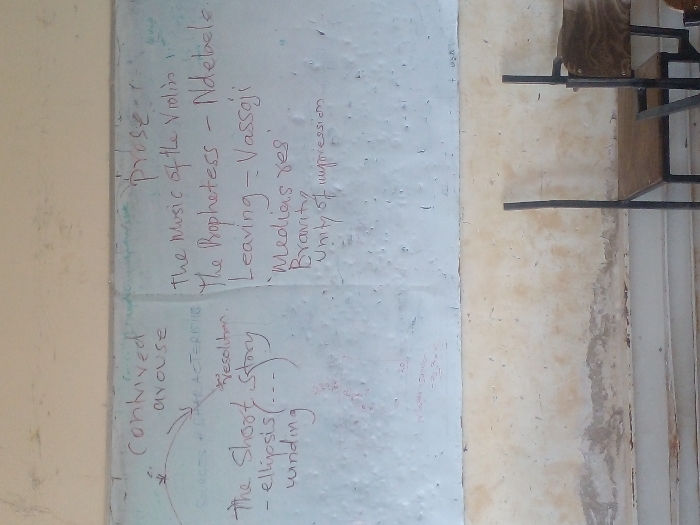 contrived
arouse
resolution.
The Short Story
- ellipsis (...)
winding
prose
The Music of the Violin,
The Prophetess - Ndebele
Leaving - Vassaji
'Medias res'
Bravity
Unity of impression